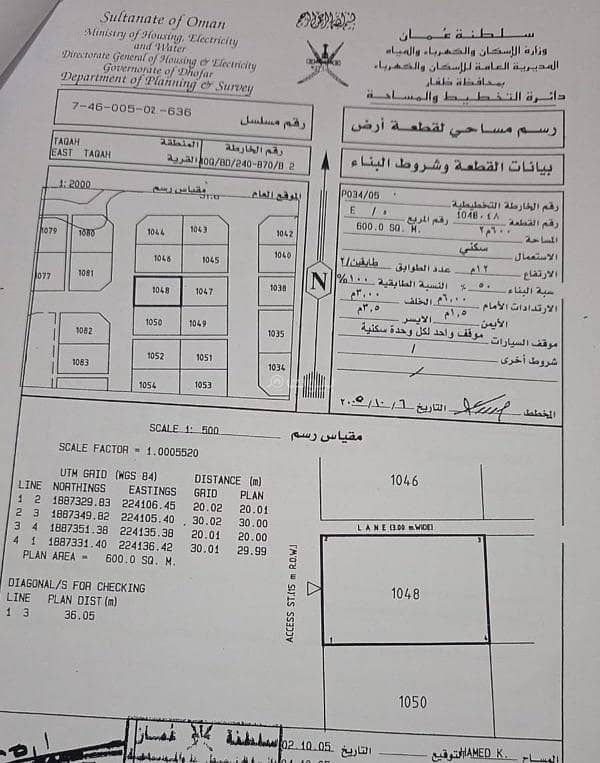 Sultanate of Oman
Ministry of Housing, Electricity
and Water
Directorate General of Housing & Electricity
Governorate of Dhofar
Department of Planning & Survey
سلطنة عمان
وزارة الإسكان والكهرباء والمياه
المديرية العامة للإسكان والكهرباء
بمحافظة ظفار
دائرة التخطيط والمساحة
7-46-005-02-636
رقم مسلسل
رسم مساحي لقطعة أرض
TAQAH
المنطقة
رقم الخارطة
EAST TAQAH
القرية
بيانات القطعة وشروط البناء
1: 2000
مقياس رسم
الموقع العام
1079
1080
1044
1043
1042
1046
1045
1040
1077
1081
1048
1047
1038
1050
1049
1082
1035
1052
1051
1083
1034
1054
1053
N
رقم الخارطة التخطيطية P034/05
رقم القطعة 1048 ١٠٤٨ رقم المربع E / ٥
المساحة ٦٠٠م٢ 600.0 SQ. M.
الاستعمال سكني
الارتفاع ١٢م عدد الطوابق طابقين/٢
نسبة البناء ٥٠% النسبة الطابقية ١٠٠%
الارتدادات الأمام ٦,٠٠م الخلف ٣,٠٠م
الأيمن ١,٥م الايسر ٣,٥م
موقف السيارات موقف واحد لكل وحدة سكنية
شروط أخرى /
/
المخطط
التاريخ ٦/١٠/٢٠٠٥
SCALE 1: 500
مقياس رسم
SCALE FACTOR = 1.0005520
UTM GRID (WGS 84) DISTANCE (m)
LINE NORTHINGS EASTINGS GRID PLAN
1 2 1887329.83 224106.45 20.02 20.01
2 3 1887349.82 224105.40 30.02 30.00
3 4 1887351.38 224135.38 20.01 20.00
4 1 1887331.40 224136.42 30.01 29.99
PLAN AREA = 600.0 SQ. M.
DIAGONAL/S FOR CHECKING
LINE PLAN DIST (m)
1 3 36.05
1046
LANE (3.00 m.WIDE)
2
3
1048
ACCESS ST.(15 m R.O.W.)
1
4
1050
سلطنة عمان
02.10.05
التاريخ
HAMED K.
التوقيع
المساح